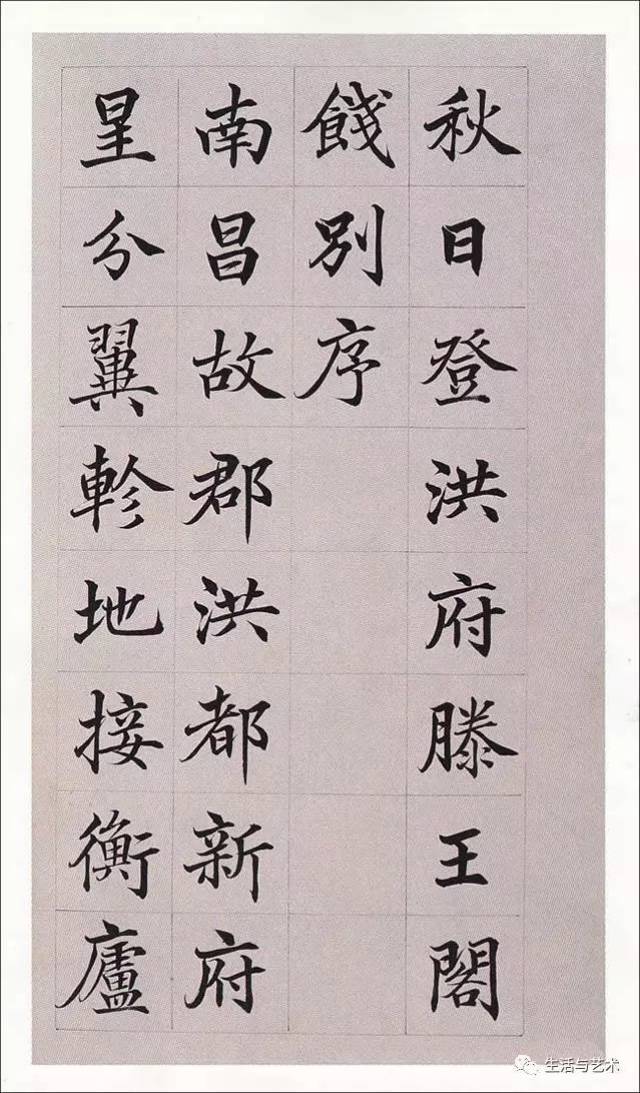 秋日登洪府滕王閣
餞別序
南昌故郡洪都新府
星分翼軫地接衡廬
生活与艺术